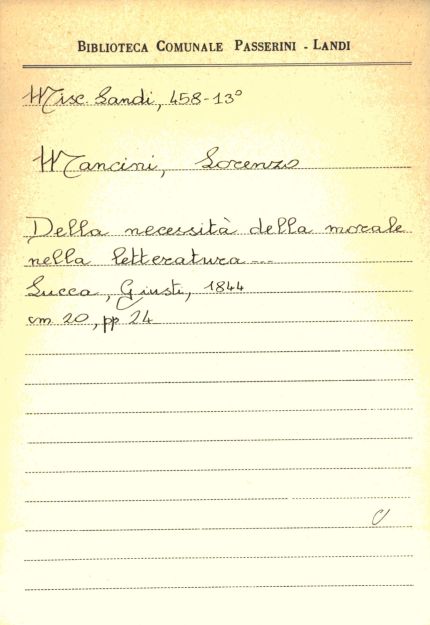 BIBLIOTECA COMUNALE PASSERINI - LANDI
Misc. Landi, 458-13°
Mancini, Lorenzo
Della necessità della morale
nella letteratura ...
Lucca, Giusti, 1844
cm 20, pp 24